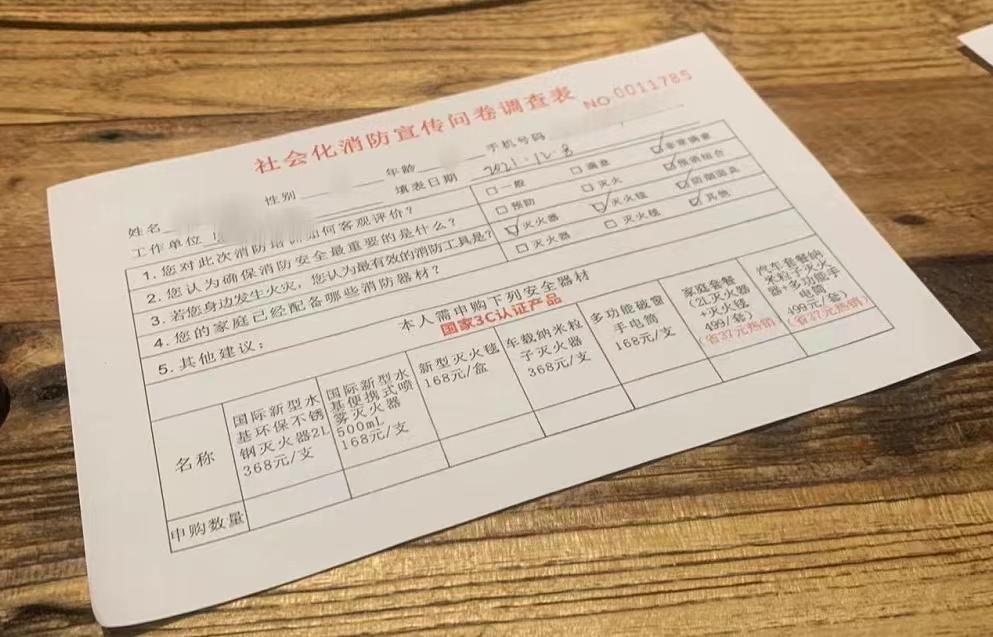 社会化消防宣传问卷调查表
NO 0011785
姓名 性别 年龄 手机号码
工作单位 填表日期 2021.12.8
1.您对此次消防培训如何客观评价? □一般 □满意 ☑非常满意
2.您认为确保消防安全最重要的是什么? □预防 □灭火 ☑预消组合
3.若您身边发生火灾,您认为最有效的消防工具是? ☑灭火器 ☑灭火毯 ☑防烟面具
4.您的家庭已经配备哪些消防器材? □灭火器 □灭火毯 ☑其他
5.其他建议:
本人需申购下列安全器材
国家3C认证产品
名称
国际新型水
基环保不锈
钢灭火器2L
368元/支
国际新型水
基便携式喷
雾灭火器
500mL
168元/支
新型灭火毯
168元/盒
车载纳米粒
子灭火器
368元/支
多功能破窗
手电筒
168元/支
家庭套餐
(2L灭火器
+灭火毯
499/套)
(省37元热销
汽车套餐纳
米粒子灭火
器+多功能手
电筒
499元/套)
(省37元热销)
申购数量